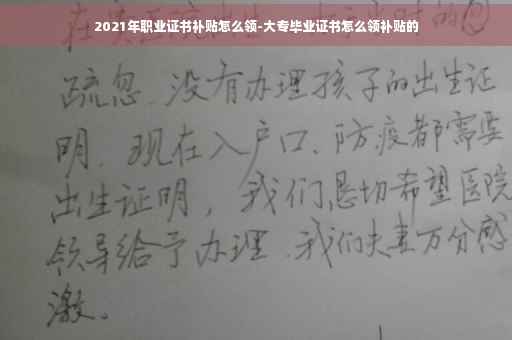 2021年职业证书补贴怎么领-大专毕业证书怎么领补贴的
疏忽、没有办理孩子的出生证
明、现在入户口、防疫都需要
出生证明，我们恳切希望医院
领导给予办理、我们夫妻万分感
激。